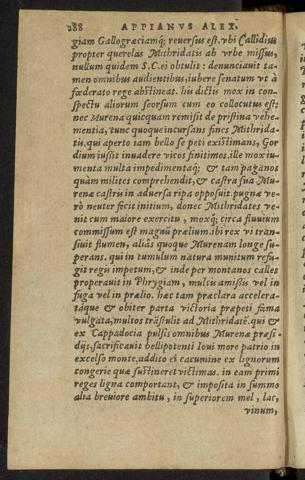 288 APPIANVS ALEX.
giam Gallogræciamq; reuersus est. vbi Callidius
propter querelas Mithridatis ab vrbe missus,
nullum quidem S.C. ei obtulit: denunciauit ta-
men omnibus audientibus, iubere senatum vt à
fœderato rege abstineat. his dictis mox in con-
spectu aliorum seorsum cum eo collocutus est:
nec Murena quicquam remisit de pristina vehe-
mentia, tunc quoque incursans fines Mithrida-
tis, qui aperto iam bello se peti existimans, Gor
dium iussit inuadere vicos finitimos. ille mox iu-
menta multa impedimentaq; & tam paganos
quàm milites comprehendit, & castra sua Mu-
renæ castris in aduersa ripa opposuit. pugnæ ve-
rò neuter fecit initium, donec Mithridates ve-
nit cum maiore exercitu, moxq; circa fluuium
commissum est magnū prælium. ibi rex vi tran-
siuit flumen, aliâs quoque Murenam longe su-
perans. qui in tumulum natura munitum refu-
git regis impetum, & inde per montanos calles
properauit in Phrygiam, multis amissis vel in
fuga vel in prælio. hæc tam præclara accelera-
táque & obiter parta victoria præpeti fama
vulgata, multos trāstulit ad Mithridatē. qui &
ex Cappadocia pulsis omnibus Murenæ præsi-
dijs, sacrificauit bellipotenti Ioui more patrio in
excelso monte, addito ei cacumine ex lignorum
congerie quæ sustineret victimas. in eam primi
reges ligna comportant, & imposita in summo
alia breuiore ambitu, in superiorem mel, lac,
vinum,